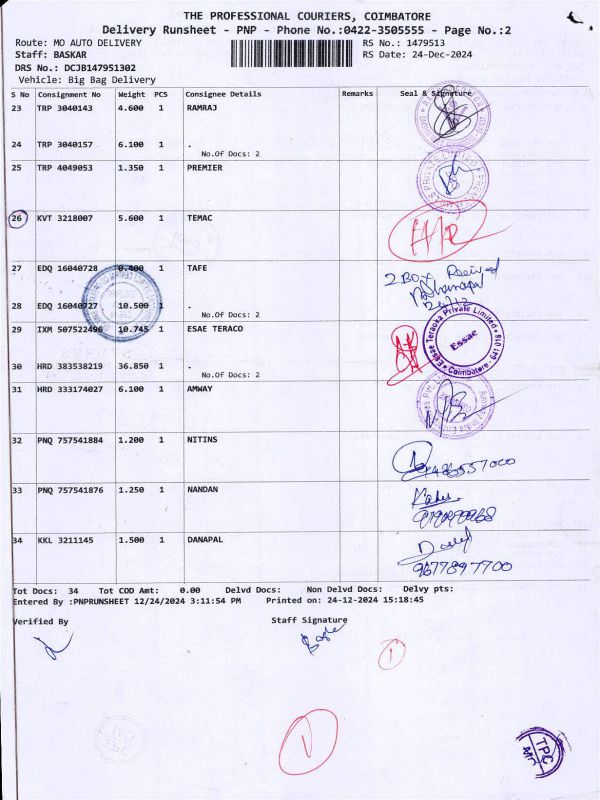 THE PROFESSIONAL COURIERS, COIMBATORE
Delivery Runsheet - PNP - Phone No.:0422-3505555 - Page No.:2
Route: MO AUTO DELIVERY
RS No.: 1479513
Staff: BASKAR
RS Date: 24-Dec-2024
DRS No.: DCJB147951302
Vehicle: Big Bag Delivery
S No Consignment No Weight PCS Consignee Details Remarks Seal & Signature
23 TRP 3040143 4.600 1 RAMRAJ
24 TRP 3040157 6.100 1 .
No.Of Docs: 2
25 TRP 4049053 1.350 1 PREMIER
26 KVT 3218007 5.600 1 TEMAC
27 EDQ 16040728 0.400 1 TAFE
2 Box Received
28 EDQ 16040727 10.500 1 .
No.Of Docs: 2
29 IXM 507522496 10.745 1 ESAE TERACO
Essae Teraoka Private Limited
Essae
Coimbatore
30 HRD 383538219 36.850 1 .
No.Of Docs: 2
31 HRD 333174027 6.100 1 AMWAY
32 PNQ 757541884 1.200 1 NITINS
33 PNQ 757541876 1.250 1 NANDAN
34 KKL 3211145 1.500 1 DANAPAL
9677897700
Tot Docs: 34 Tot COD Amt: 0.00 Delvd Docs: Non Delvd Docs: Delvy pts:
Entered By :PNPRUNSHEET 12/24/2024 3:11:54 PM Printed on: 24-12-2024 15:18:45
Verified By Staff Signature
TPC